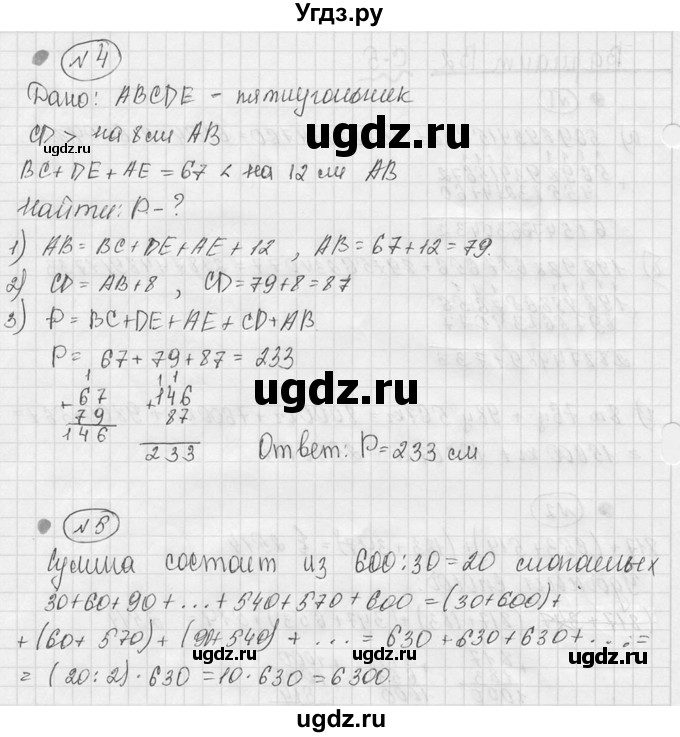 Угдз.ру
№4
Дано: ABCDE – пятиугольник
CD > на 8 см AB
BC + DE + AE = 67 < на 12 см AB
Найти: P – ?
1) AB = BC + DE + AE + 12 , AB = 67 + 12 = 79.
2) CD = AB + 8 , CD = 79 + 8 = 87
3) P = BC + DE + AE + CD + AB
P = 67 + 79 + 87 = 233
1 1 1
+ 67 + 146
79 87
146 233
Ответ: P = 233 см
№5
Сумма состоит из 600 : 30 = 20 слогаемых
30 + 60 + 90 + ... + 540 + 570 + 600 = (30 + 600) +
+ (60 + 570) + (90 + 540) + ... = 630 + 630 + 630 + ... =
= (20 : 2) · 630 = 10 · 630 = 6300.
ugdz.ru
ugdz.ru
ugdz.ru
ugdz.ru
ugdz.ru
ugdz.ru
ugdz.ru
ugdz.ru